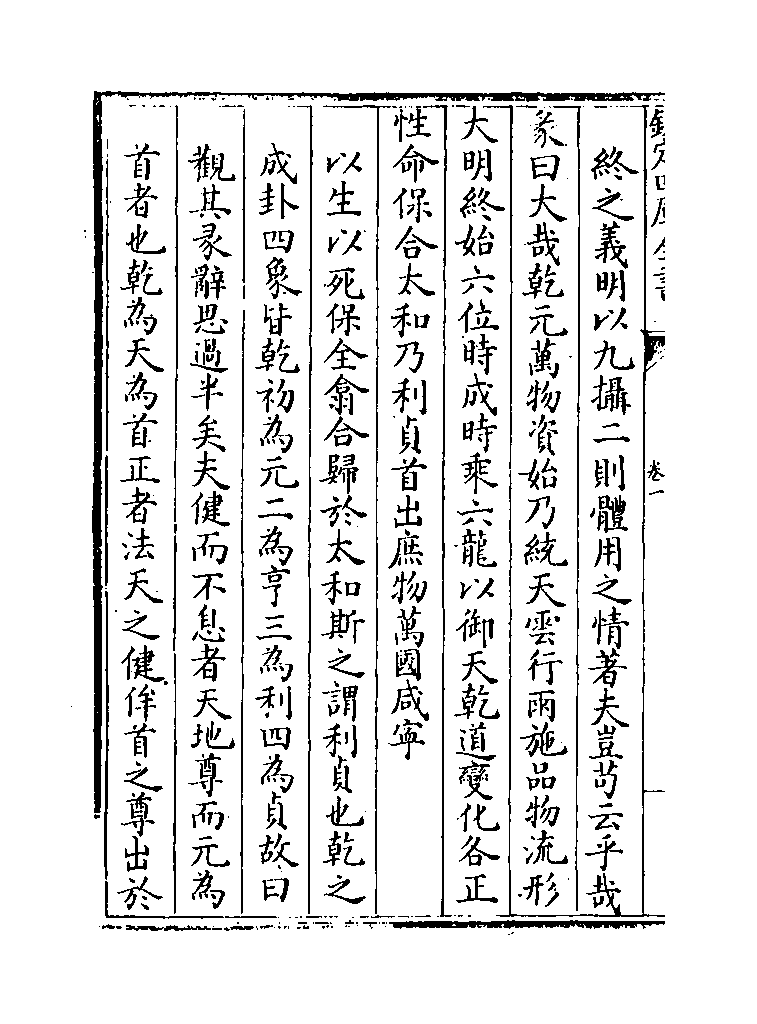 欽定四庫全書
卷一
終之義明以九攝二則體用之情著夫豈苟云乎哉
彖曰大哉乾元萬物資始乃統天雲行雨施品物流形
大明終始六位時成時乘六龍以御天乾道變化各正
性命保合太和乃利貞首出庶物萬國咸寧
以生以死保全翕合歸於太和斯之謂利貞也乾之
成卦四象皆乾初為元二為亨三為利四為貞故曰
觀其彖辭思過半矣夫健而不息者天地尊而元為
首者也乾為天為首正者法天之健侔首之尊出於